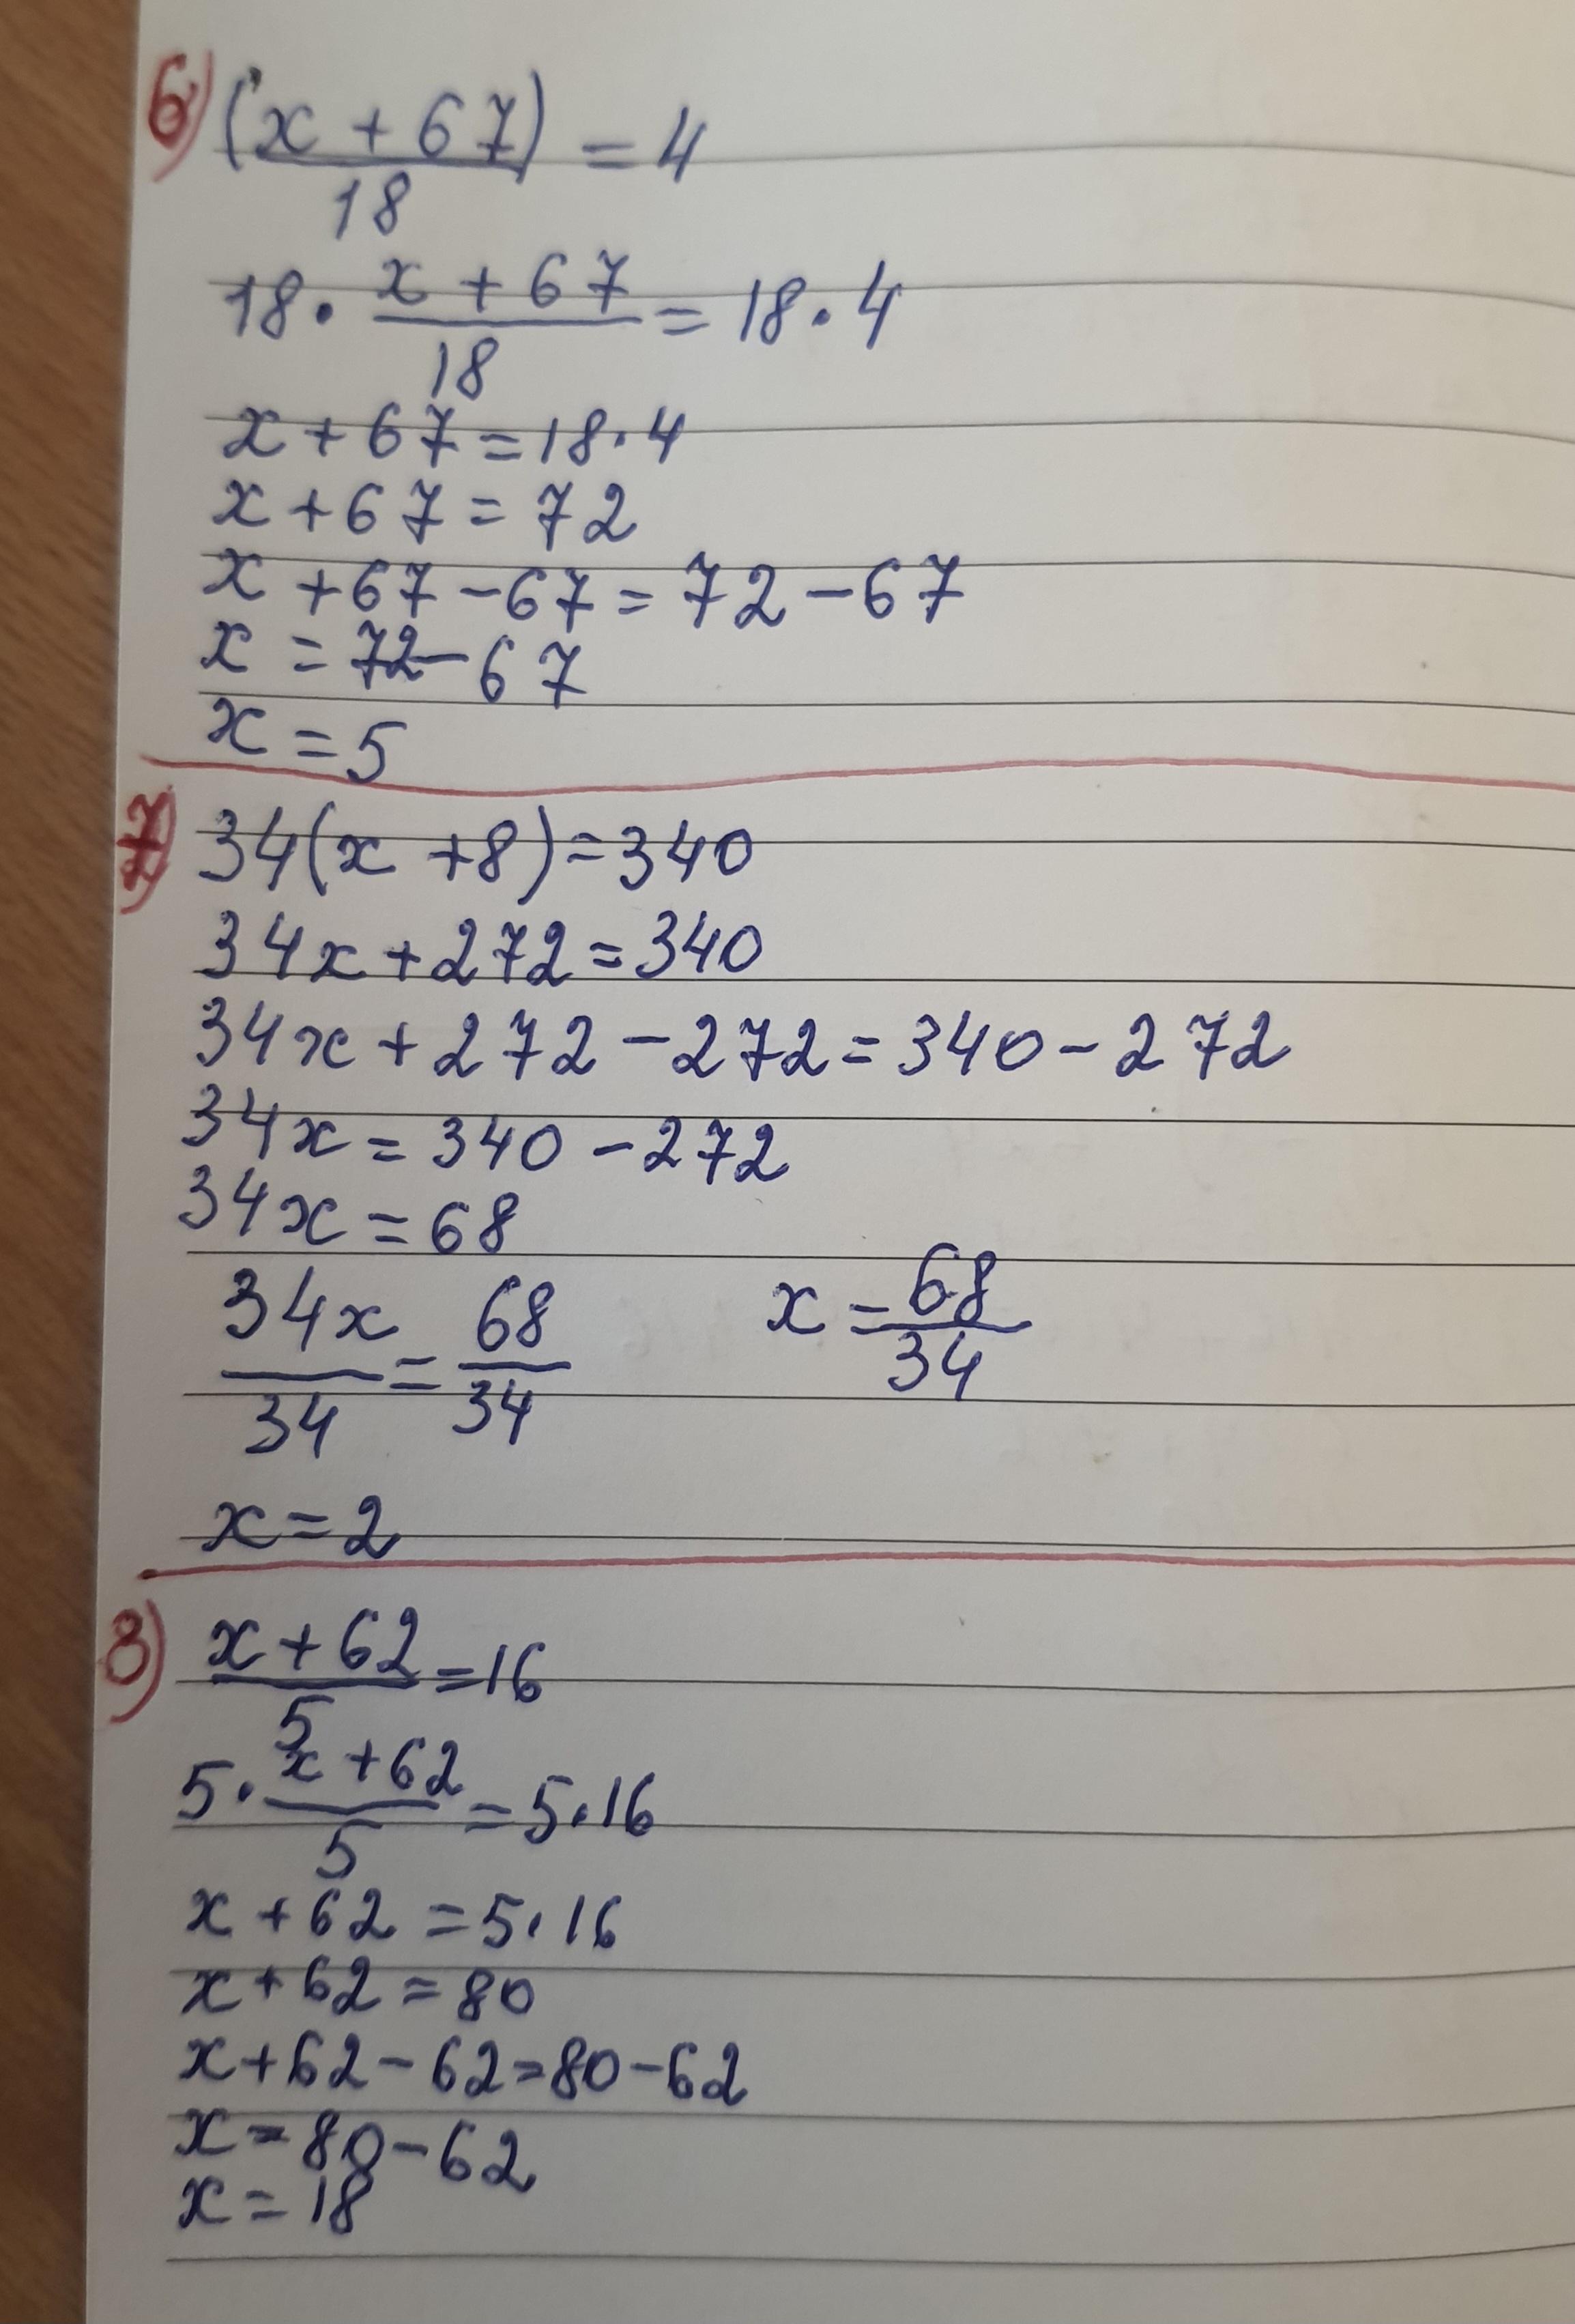 6) (x + 67)/18 = 4
18 · (x + 67)/18 = 18 · 4
x + 67 = 18 · 4
x + 67 = 72
x + 67 - 67 = 72 - 67
x = 72 - 67
x = 5
7) 34(x + 8) = 340
34x + 272 = 340
34x + 272 - 272 = 340 - 272
34x = 340 - 272
34x = 68
34x/34 = 68/34 x = 68/34
x = 2
8) x + 62/5 = 16
5 · x + 62/5 = 5 · 16
x + 62 = 5 · 16
x + 62 = 80
x + 62 - 62 = 80 - 62
x = 80 - 62
x = 18